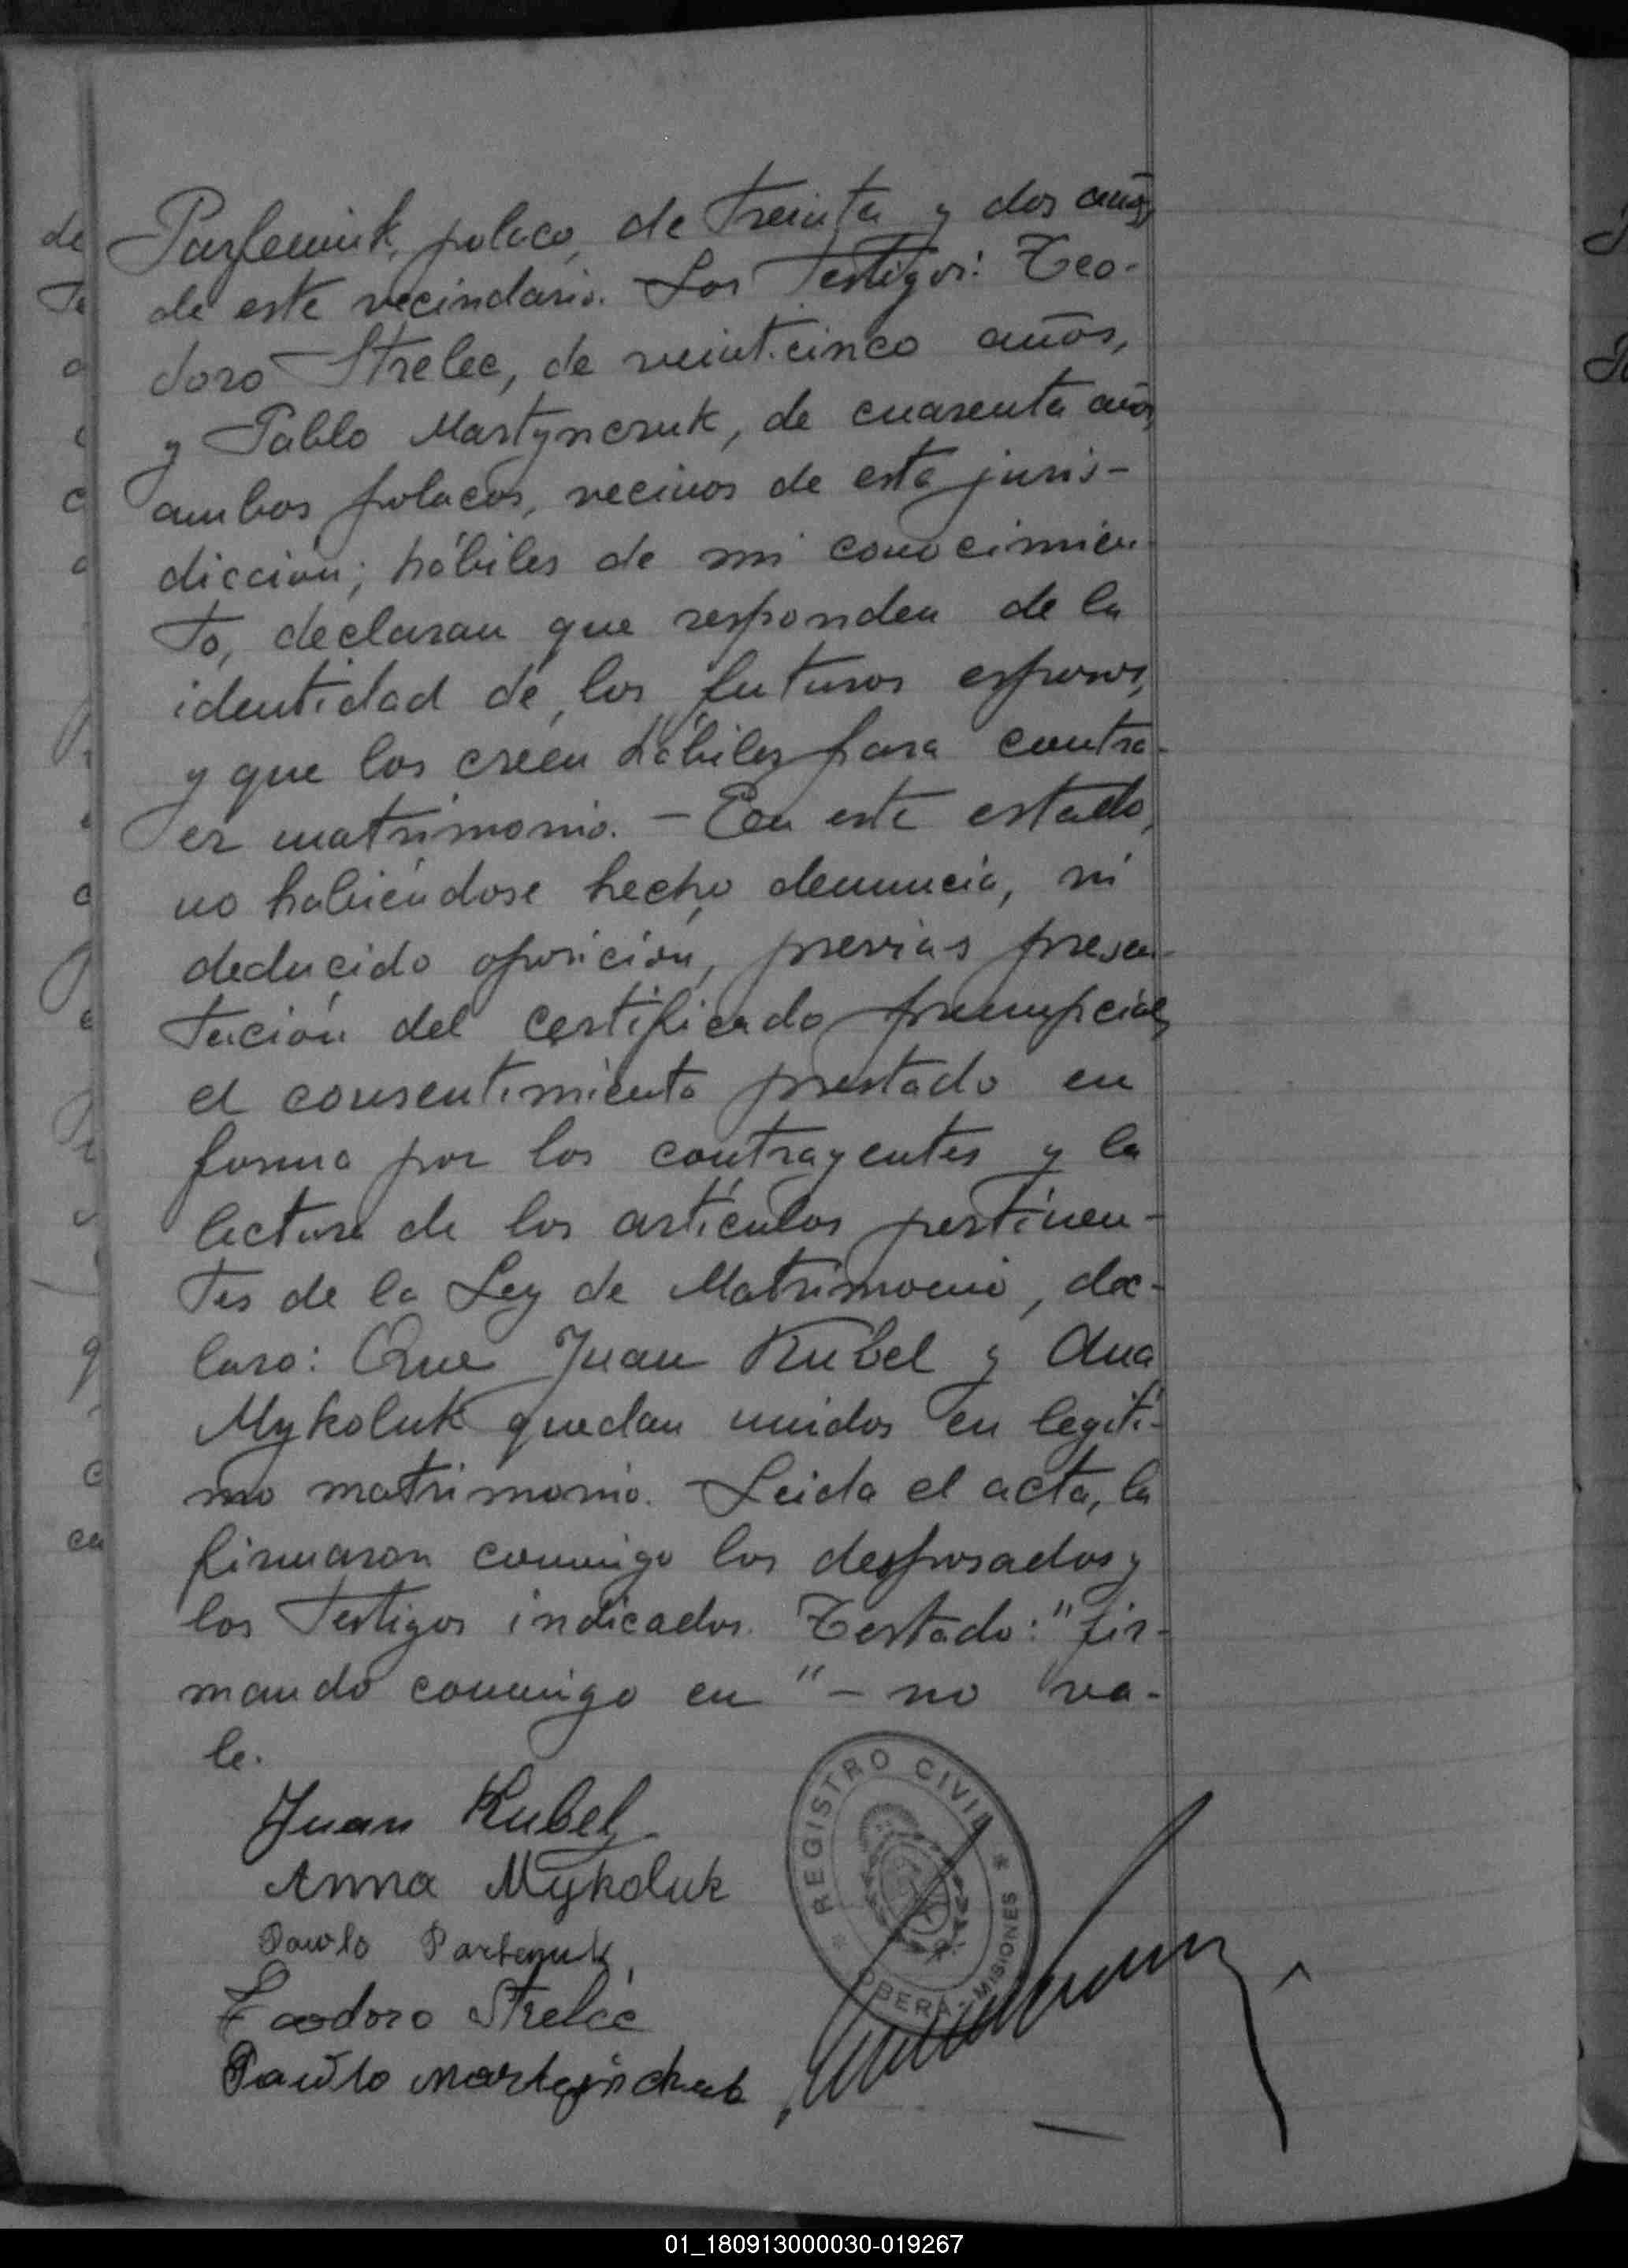 Parfeniuk, polaco, de treinta y dos años,
de este vecindario. Los Testigos: Teo-
doro Strelec, de veinticinco años,
y Pablo Martynczuk, de cuarenta años,
ambos polacos, vecinos de esta juris-
dicción; hábiles de mi conocimien-
to, declaran que responden de la
identidad de los futuros esposos,
y que los créen hábiles para contra-
er matrimonio. - En este estado,
no habiéndose hecho denuncia, ni
deducido oposición, previas presen-
tación del certificado prenupcial,
el consentimiento prestado en
forma por los contrayentes y la
lectura de los artículos pertinen-
tes de la Ley de Matrimonio, dec-
laro: Que Juan Kubel y Ana
Mykoluk quedan unidos en legíti-
mo matrimonio. Leida el acta, la
firmaron conmigo los desposados y
los Testigos indicados. Testado: "fir-
mando conmigo en" - no va-
le.
Juan Kubel
Anna Mykoluk
Pawlo Parfenuk
Teodoro Strelec
Pawlo
REGISTRO CIVIL * OBERA - MISIONES *
01_180913000030-019267